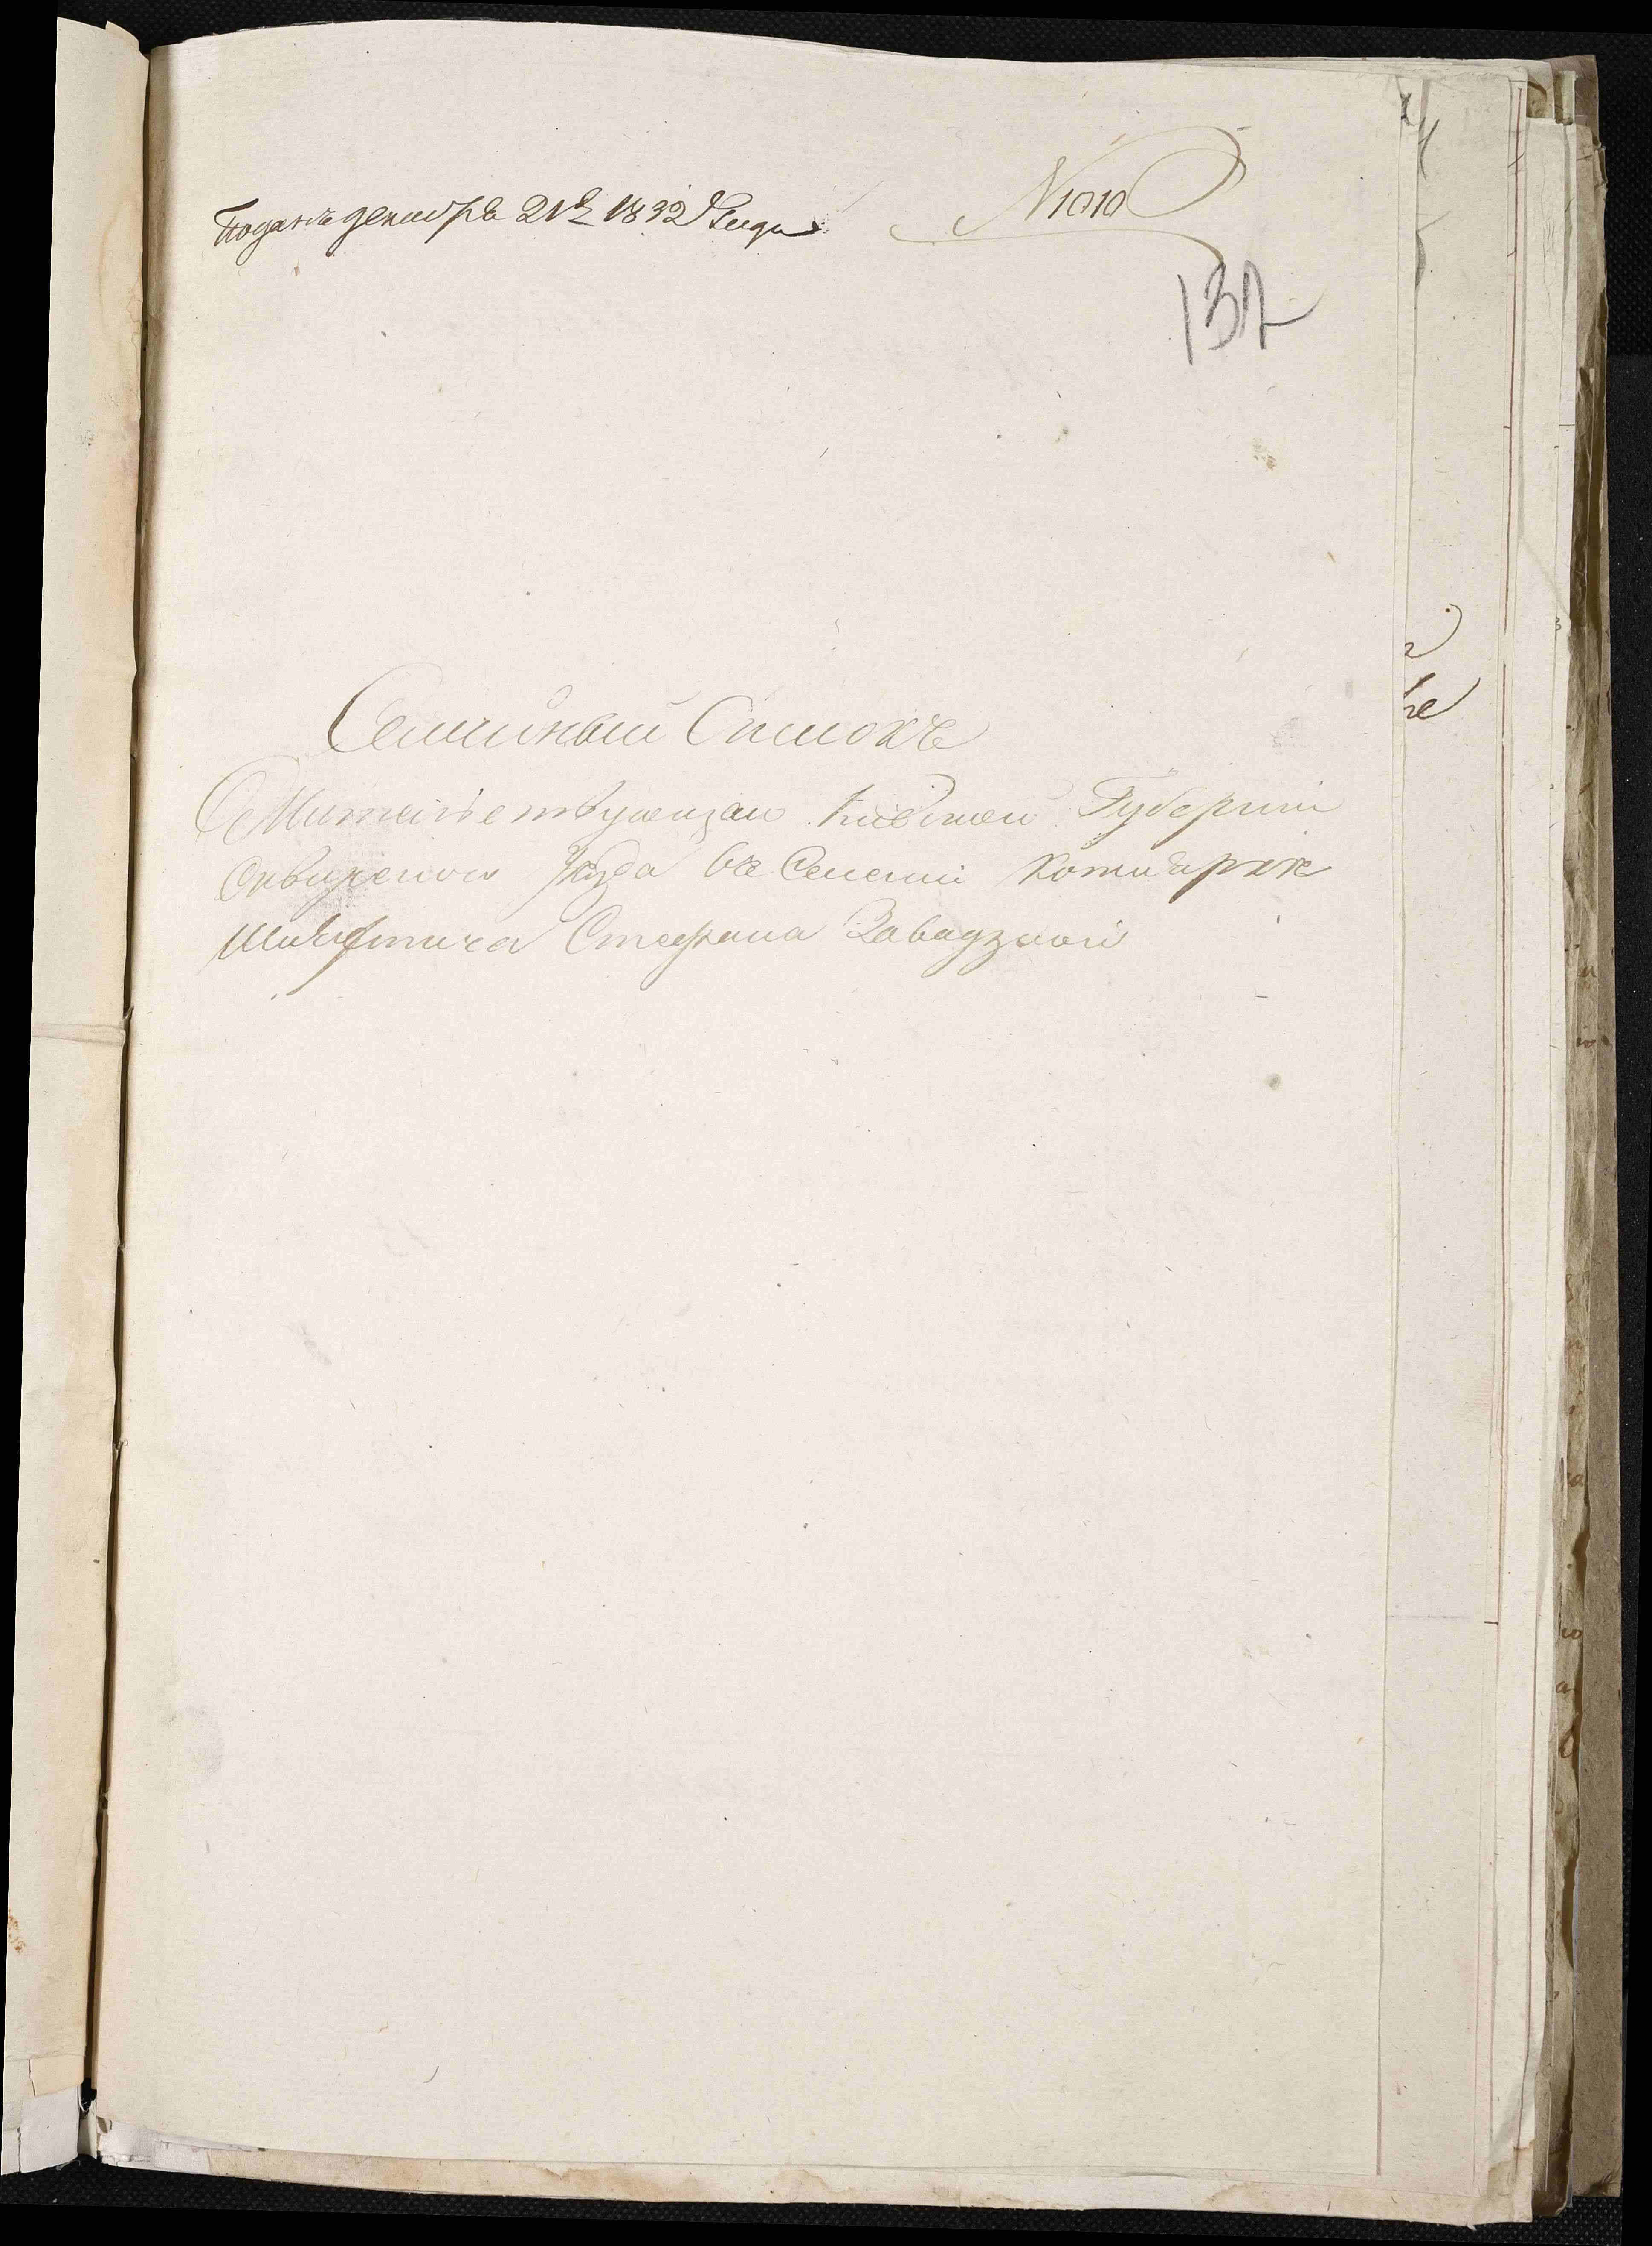 Поданъ декабръ 21го 1832 Года
N1010
137
Семийный Списокъ
Жительствующаго Киевской Губернии
Сквирского Уезда въ Селении Котлярке
Шляхтича Стефана Завадзкого